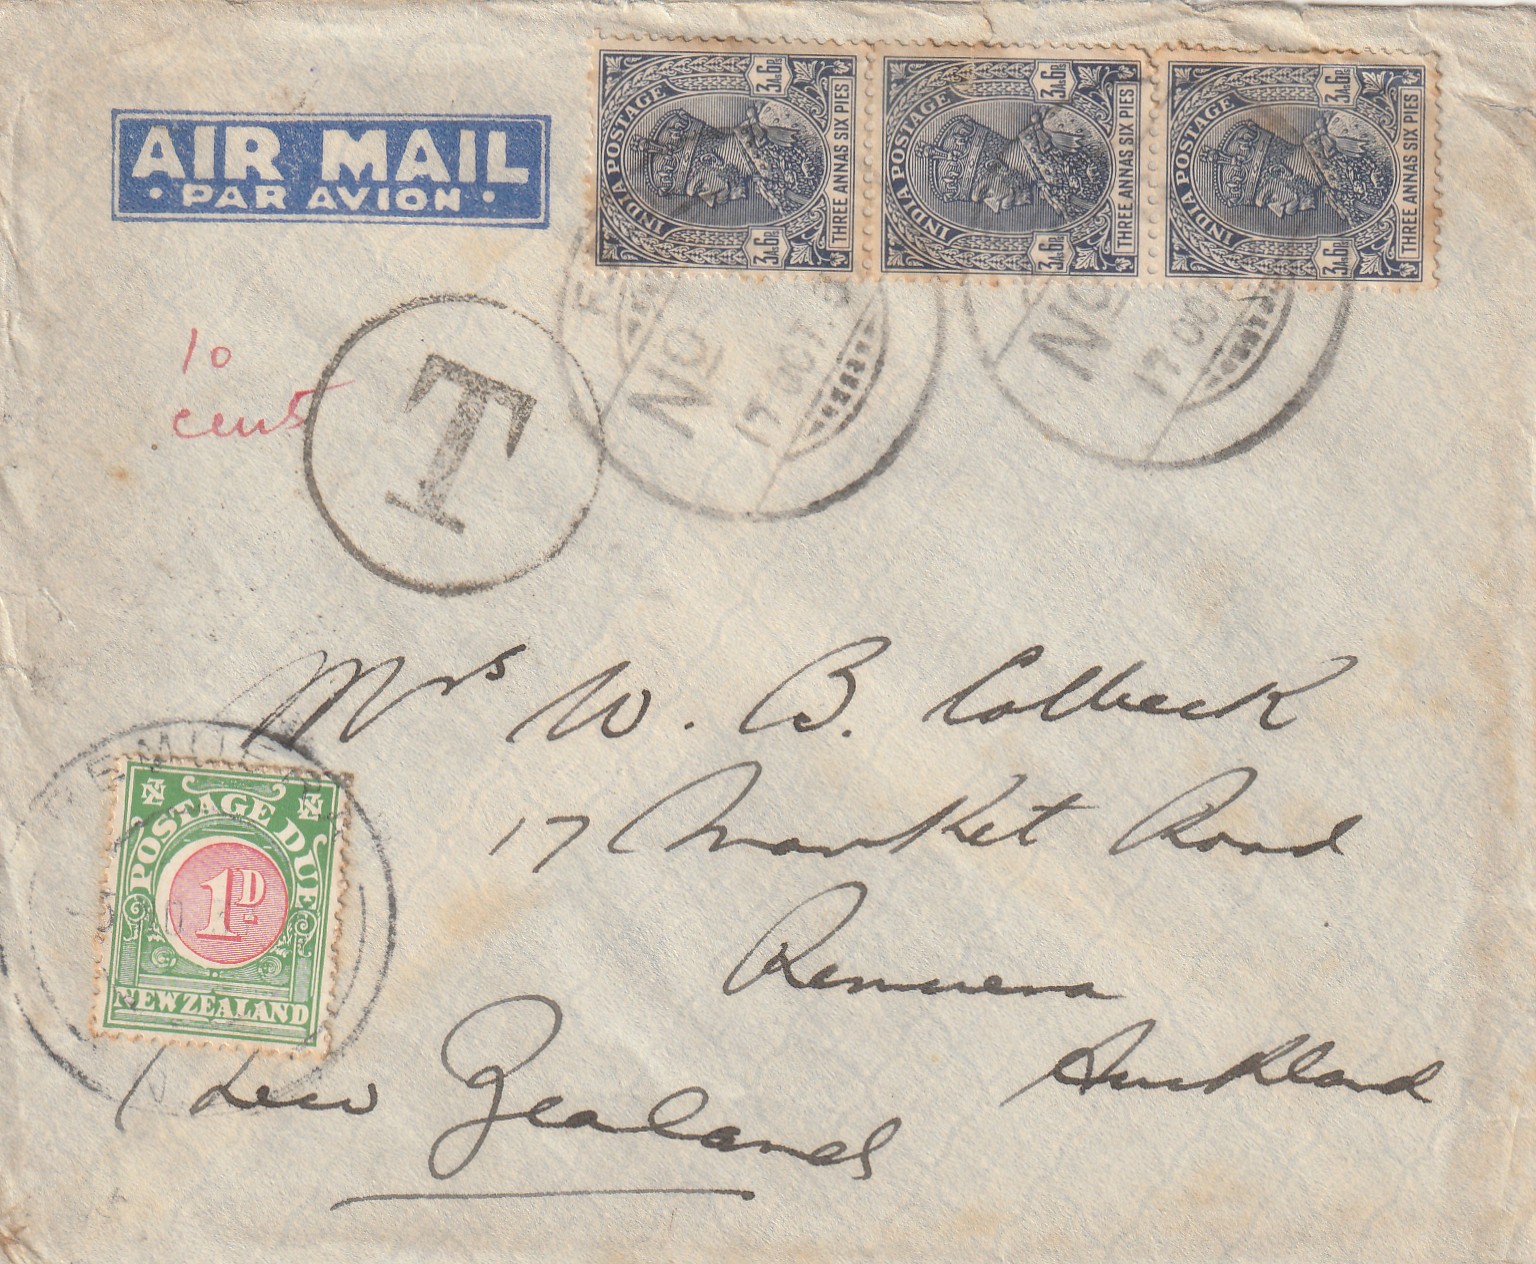 AIR MAIL
· PAR AVION ·
INDIA POSTAGE
3A.6P.
3A.6P.
THREE ANNAS SIX PIES
INDIA POSTAGE
3A.6P.
3A.6P.
THREE ANNAS SIX PIES
INDIA POSTAGE
3A.6P.
3A.6P.
THREE ANNAS SIX PIES
No
17 OCT.
No
17 OCT
10
cent
T
Mrs W. B. Colbeck
17 Market Road
Remuera
Auckland
New Zealand
NZ
NZ
POSTAGE DUE
1D
NEW ZEALAND